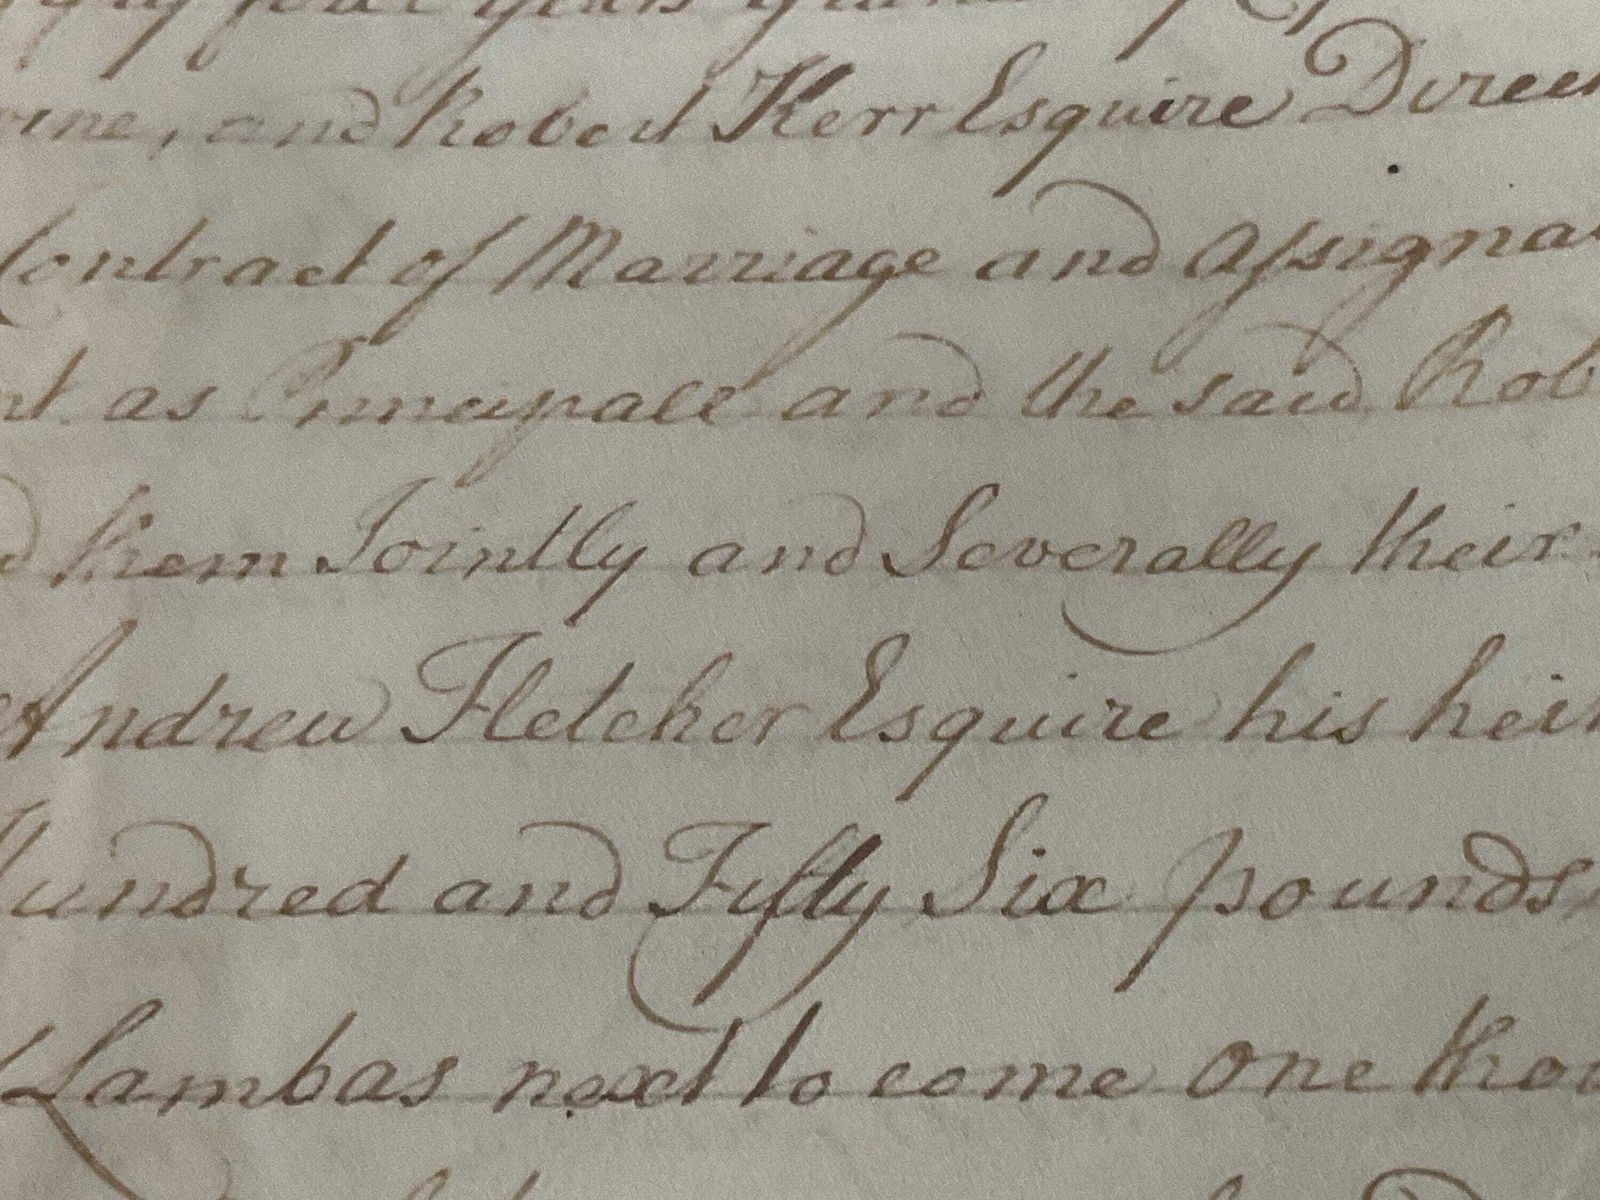 four years
and Robert Kerr Esquire Direct
Contract of Marriage and Assigna
as Principall and the said Rob
them Jointly and Severally their
Andrew Fletcher Esquire his heir
Hundred and Fifty Six pounds
Lambas next to come One thou